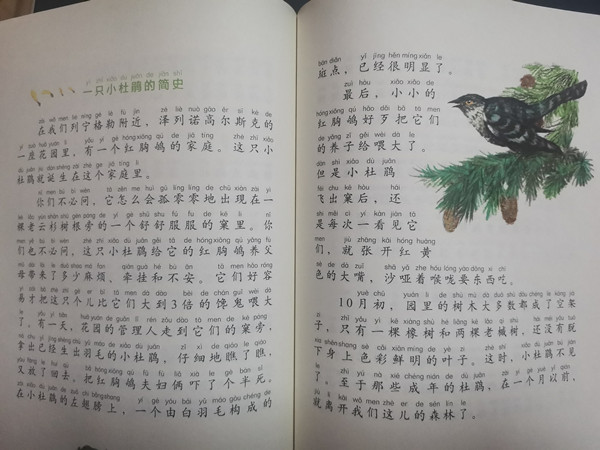 一只小杜鹃的简史
在我们列宁格勒附近，泽列诺高尔斯克的
一座花园里，有一个红胸鸲的家庭。这只小
杜鹃就诞生在这个家庭里。
你们不必问，它怎么会孤零零地出现在一
棵老云杉树根旁的一个舒舒服服的窠里。你
们也不必问，这只小杜鹃给它的红胸鸲养父
母带来了多少麻烦、牵挂和不安。它们好容
易才把这个几比它们大到3倍的馋鬼喂大
了。有一天，花园的管理人走到它们的窠旁，
拿出已经生出羽毛的小杜鹃，仔细地瞧了瞧，
又放了回去，把红胸鸲夫妇俩吓了个半死。
在小杜鹃的左翅膀上，一个由白羽毛构成的
斑点，已经很明显了。
最后，小小的
红胸鸲好歹把它们
的养子给喂大了。
但是小杜鹃
飞出窠后，还
是每次一看见它
们，就张开红黄
色的大嘴，沙哑着喉咙要东西吃。
10月初，园里的树木大多数都成了空架
子，只有一棵橡树和两棵老槭树，还没有脱
下身上色彩鲜明的叶子，这时，小杜鹃不见
了。至于那些成年的杜鹃，在一个月以前，
就离开我们这儿的森林了。